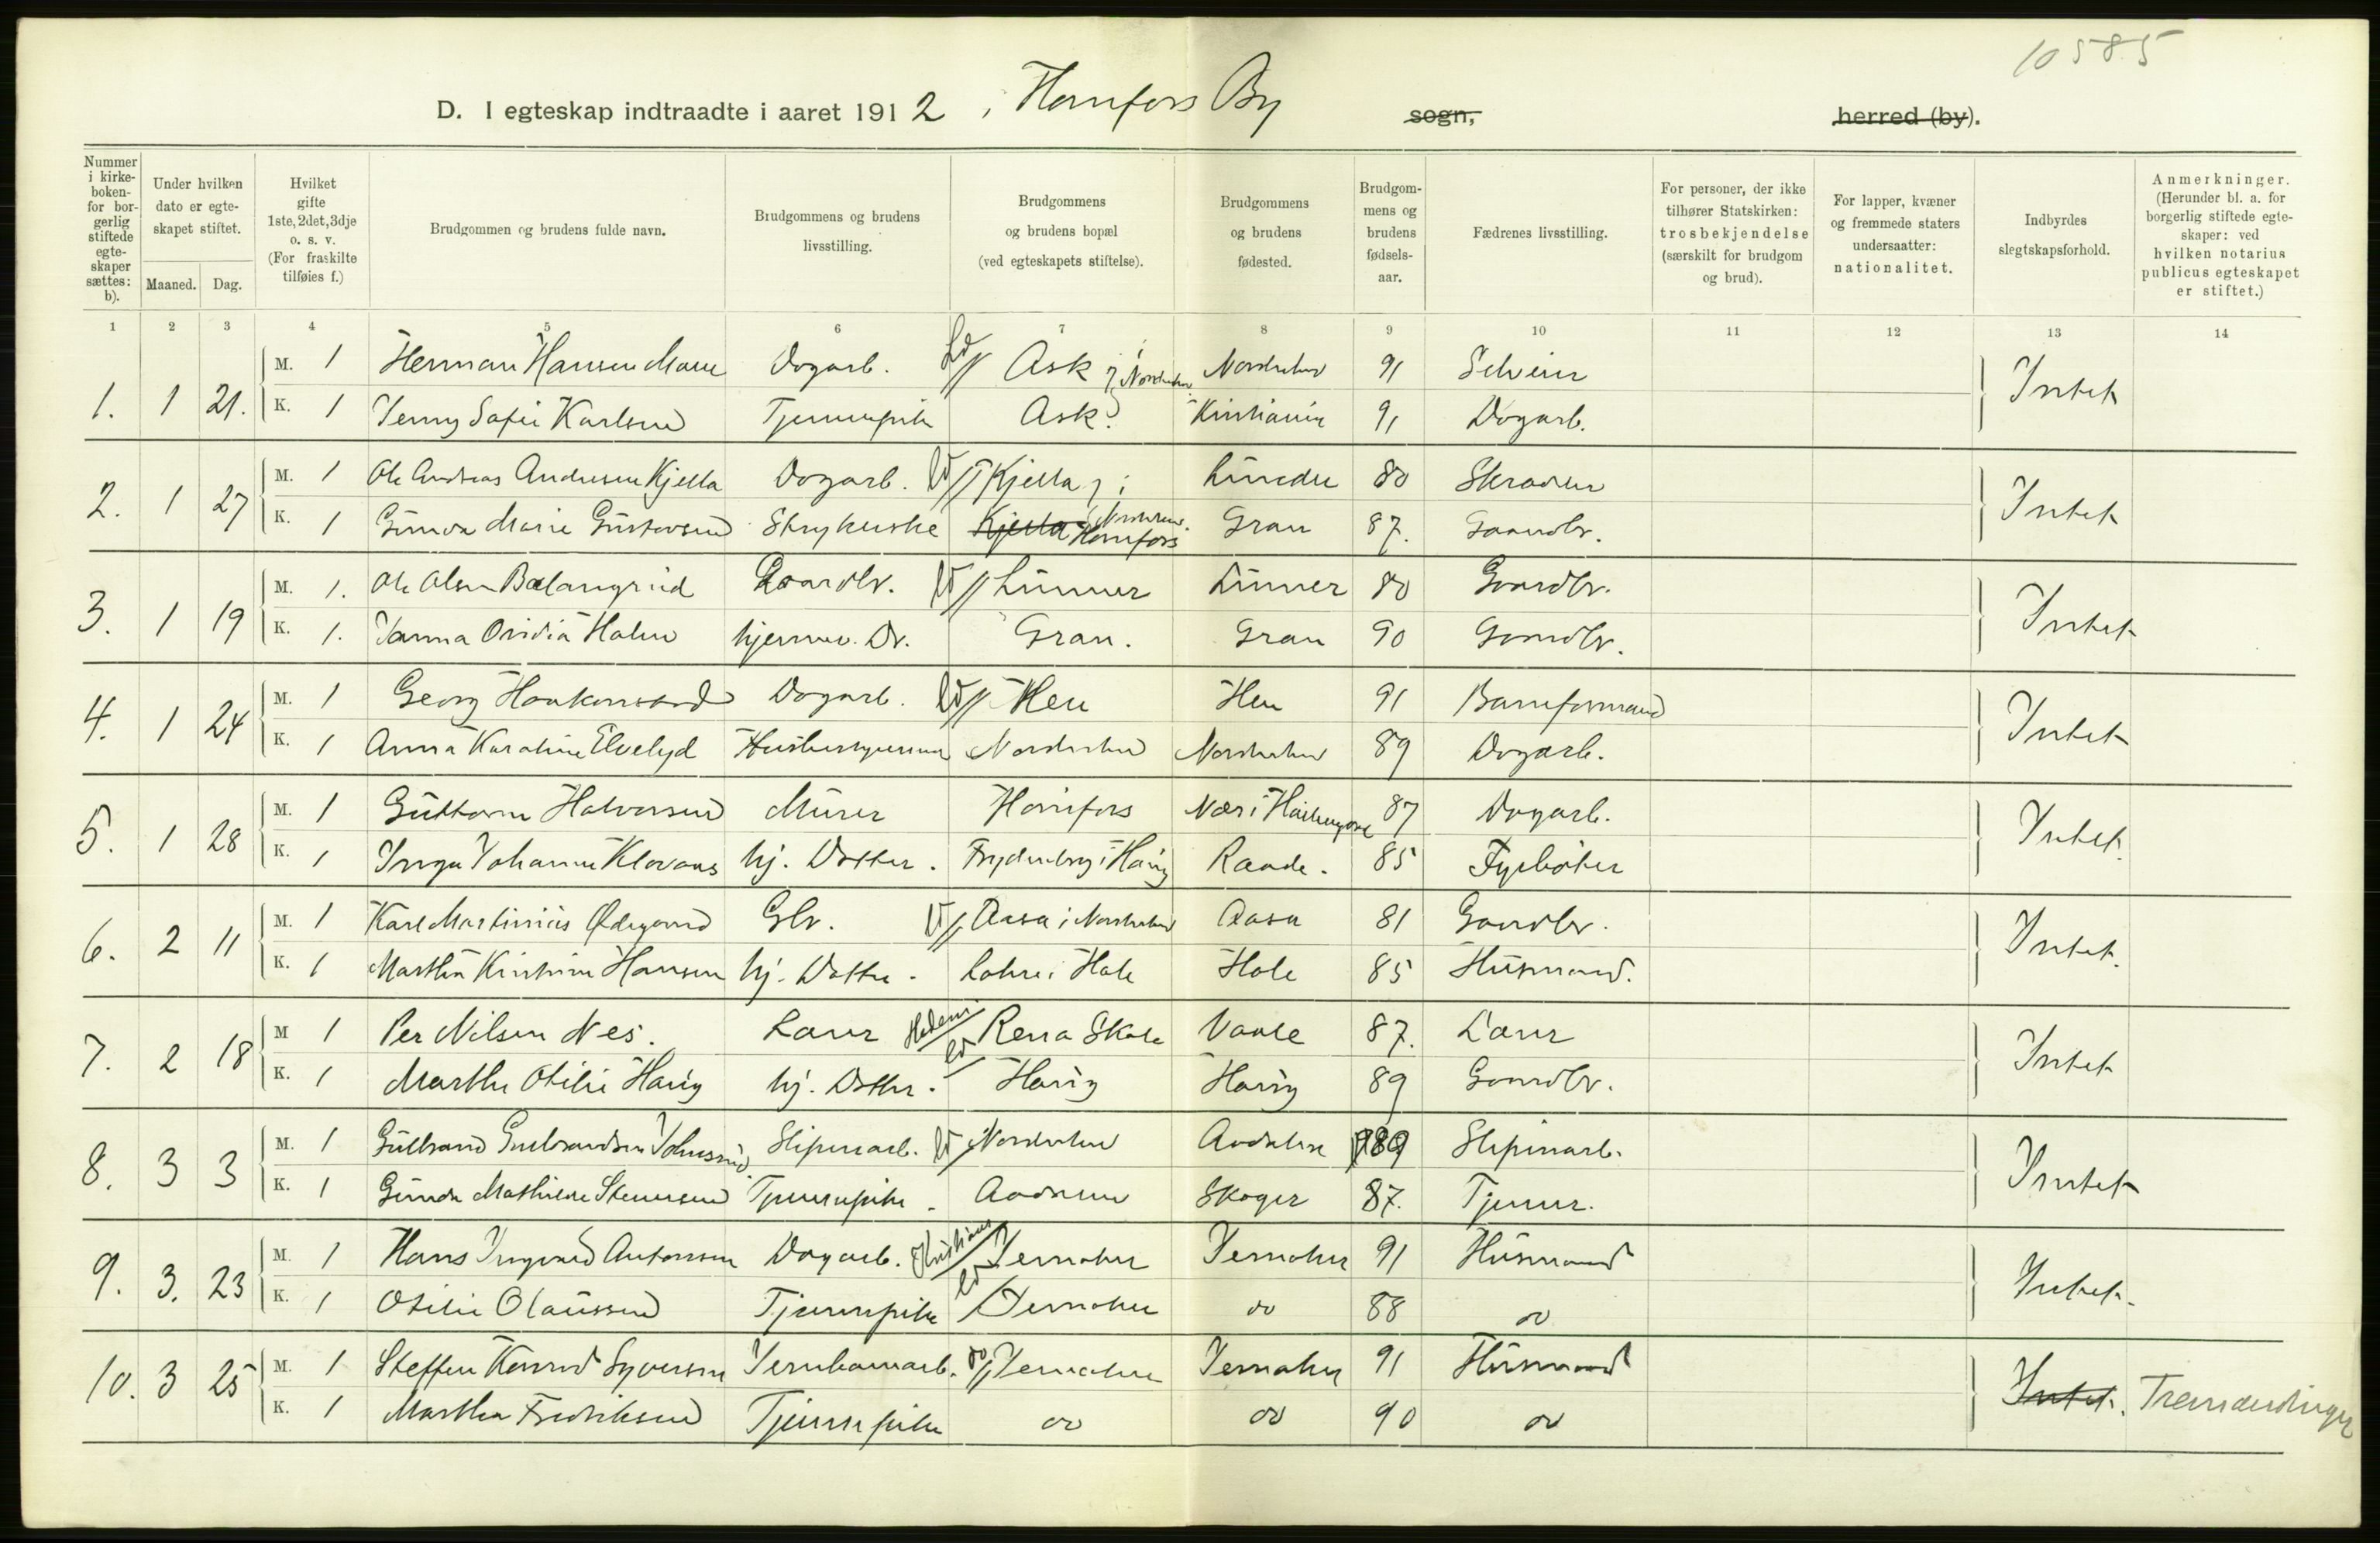 10585
D. I egteskap indtraadte i aaret 1912, Hønefoss By sogn, herred (by).
Nummer i kirkeboken- for borgerlig stiftede egteskaper sættes: b).
Under hvilken dato er egteskapet stiftet.
Maaned. Dag.
Hvilket gifte 1ste, 2det, 3dje o. s. v. (For fraskilte tilføies f.)
Brudgommen og brudens fulde navn.
Brudgommens og brudens livsstilling.
Brudgommens og brudens bopæl (ved egteskapets stiftelse).
Brudgommens og brudens fødested.
Brudgommens og brudens fødselsaar.
Fædrenes livsstilling.
For personer, der ikke tilhører Statskirken: trosbekjendelse (særskilt for brudgom og brud).
For lapper, kvæner og fremmede staters undersaatter: nationalitet.
Indbyrdes slegtskapsforhold.
Anmerkninger. (Herunder bl. a. for borgerlig stiftede egteskaper: ved hvilken notarius publicus egteskapet er stiftet.)
1 2 3 4 5 6 7 8 9 10 11 12 13 14
1. 1 21. M. 1 Herman Hansen Dagarb. Ask Norderhov 91 Selveier Intet
K. 1 Jenny Sofie Karlsen Tjenestepike Ask Kristiania 91 Dagarb.
2. 1 27 M. 1 Ole Andreas Andersen Kjella Dagarb. Kjella i 80 Skrædder Intet
K. 1 Gunda Marie Gustavsen Strykerske Kjella Hønefos Gran 87. Gaardbr.
3. 1 19 M. 1. Ole Olsen Bælangrud Gaardbr. Lunner Lunner 80 Gaardbr. Intet
K. 1. Janna Ovidia Holm hjemmev. Dr. Gran. Gran 90 Gaardbr.
4. 1 24 M. 1 Georg Haakonsen Dagarb. Hen Hen 91 Baneformand Intet
K. 1 Anna Karoline Elvelyd Norderhov Norderhov 89 Dagarb.
5. 1 28 M. 1 Guttorm Halvorsen Murer Hønefos 87 Dagarb. Intet.
K. 1 Inga Johanne Klavaas hj. Datter. Frydenberg i Haug Raade. 85 Fyrbøter
6. 2 11 M. 1 Karl Martinius Ødegaard Gbr. Aasa i Norderhov Aasa 81 Gaardbr. Intet.
K. 1 Martha Kristine Hansen hj. Datter. i Hole Hole 85 Husmand.
7. 2 18 M 1 Per Nilsen Nes. Lærer Hedem Rena Skole Vaale 87. Lærer Intet
K. 1 Marthe Otilie Haug hj. Datter. Haug Haug 89 Gaardbr.
8. 3 3 M. 1 Gulbrand Gulbrandsen Sliperiarb. Norderhov Aadalen 89 Sliperiarb. Intet
K. 1 Gunda Mathilde Stenersen Tjenestepike. Aadalen Skoger 87. Tjener.
9. 3. 23 M. 1 Hans Ingvald Antonsen Dagarb. Kristians Jevnaker Jevnaker 91 Husmand Intet.
K. 1 Otilie Olaussen Tjenestepike Jevnaker do 88 do
10. 3 25 M. 1 Steffen Konrad Syversen Jernbanearb. Jevnaker Jevnaker 91 Husmand Intet. Tremændinger
K. 1 Martha Fredriksen Tjenestepike do do 90 do